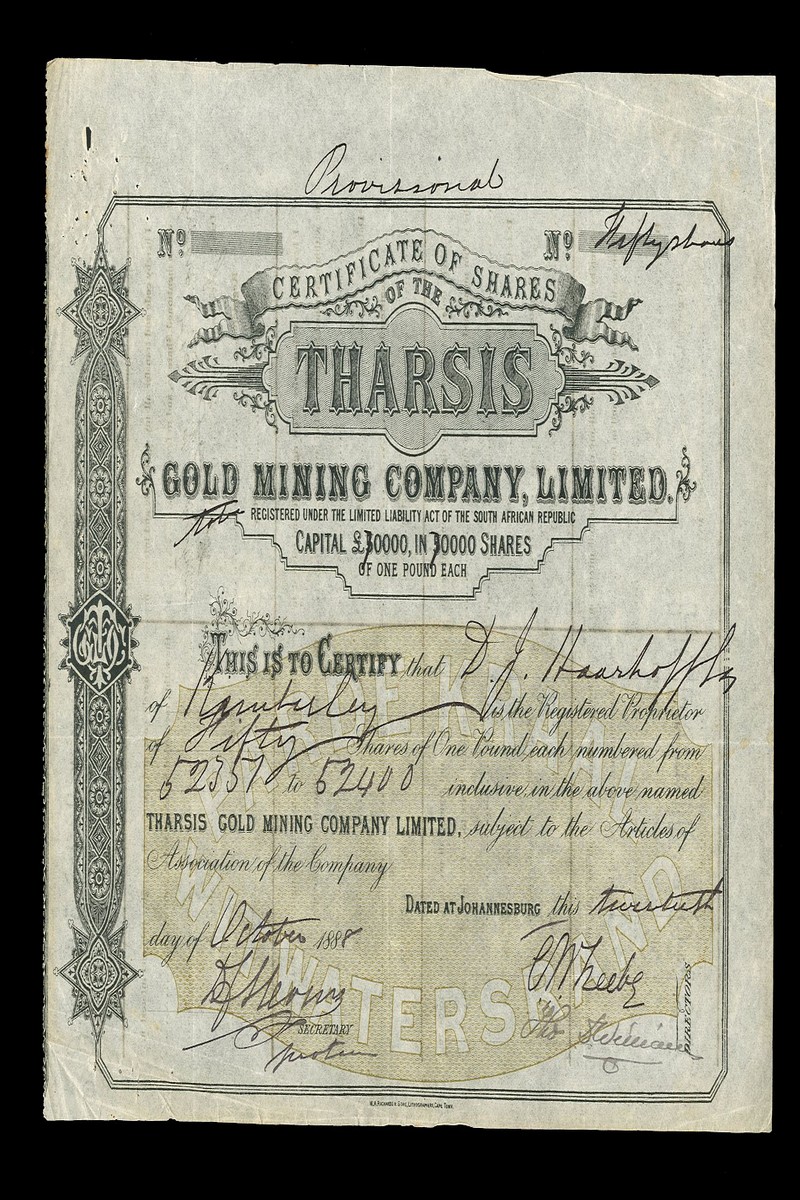 Provisional
Nº Nº Fifty shares
CERTIFICATE OF SHARES
OF THE
THARSIS
GOLD MINING COMPANY, LIMITED.
REGISTERED UNDER THE LIMITED LIABILITY ACT OF THE SOUTH AFRICAN REPUBLIC
CAPITAL £70000, IN 70000 SHARES
OF ONE POUND EACH
THIS IS TO CERTIFY that D. J. Haarhoff
of Kimberley is the Registered Proprietor
of Fifty Shares of One Pound each numbered from
52351 to 52400 inclusive, in the above named
THARSIS GOLD MINING COMPANY LIMITED, subject to the Articles of
Association of the Company
DATED AT JOHANNESBURG this twentieth
day of October 1888
SECRETARY
DIRECTORS
KRAAL
WITWATERSRAND